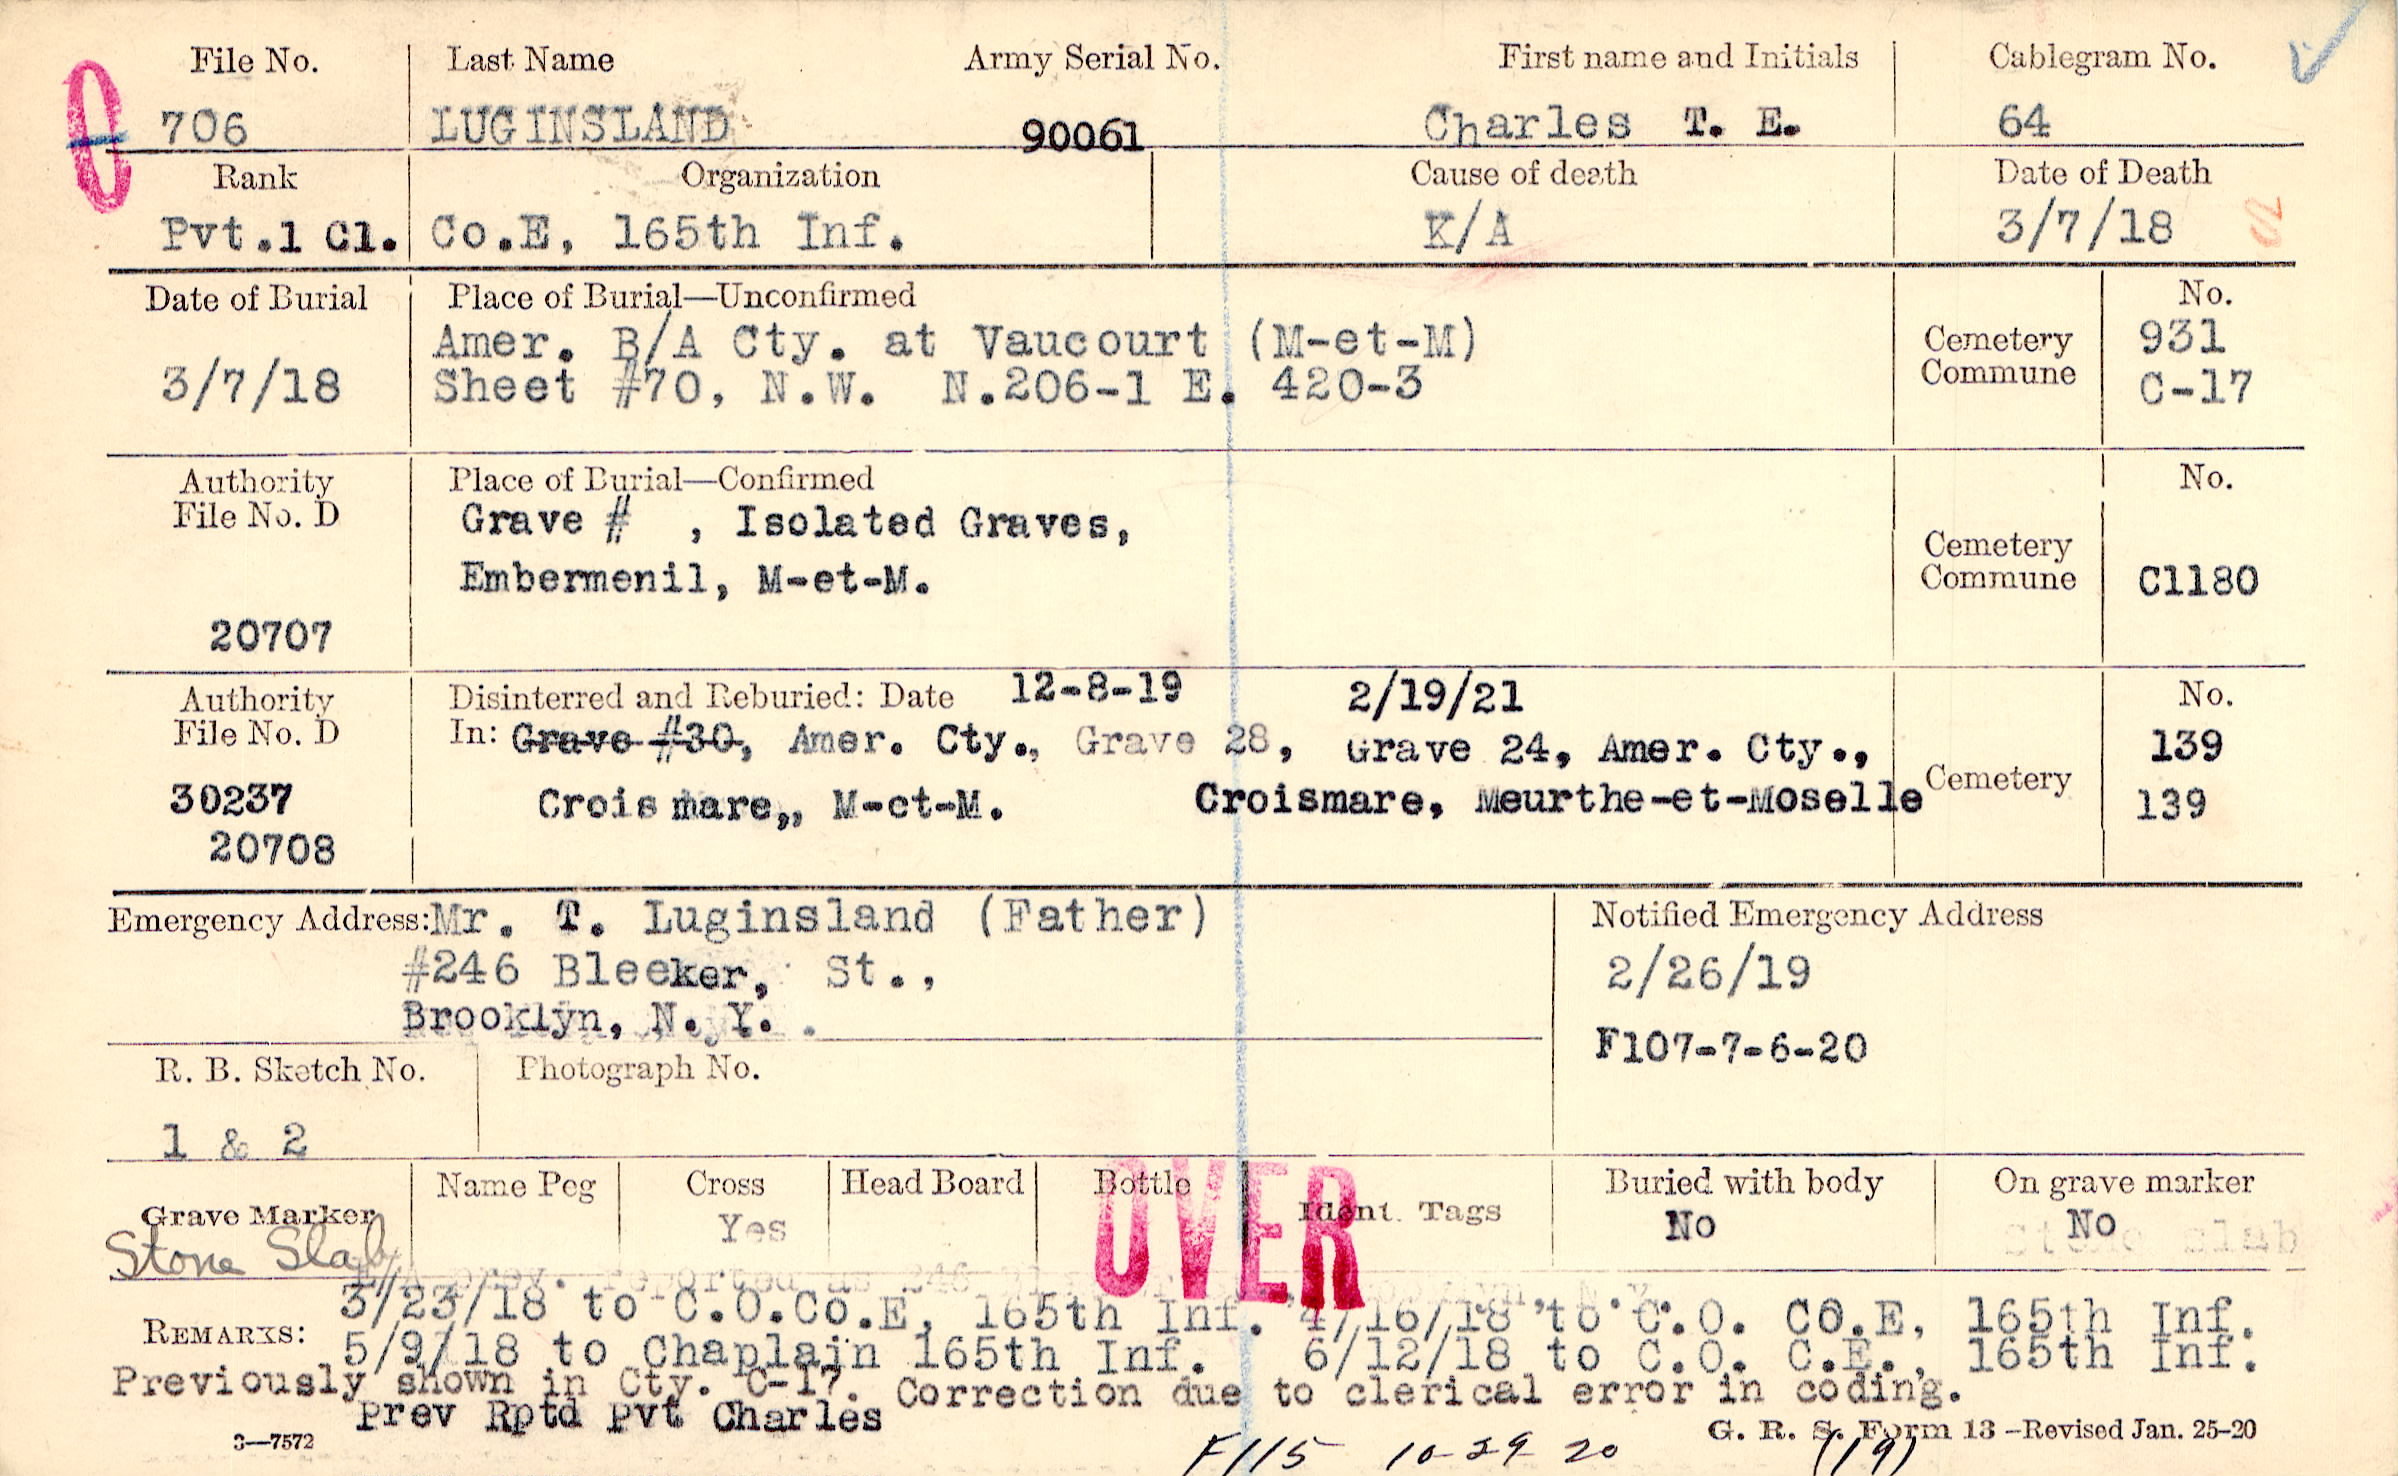 File No. Last Name Army Serial No. First name and Initials Cablegram No.
706 LUGINSLAND 90061 Charles T. E. 64
Rank Organization Cause of death Date of Death
Pvt.1 Cl. Co.E, 165th Inf. K/A 3/7/18
Date of Burial Place of Burial—Unconfirmed No.
Amer. B/A Cty. at Vaucourt (M-et-M) Cemetery 931
3/7/18 Sheet #70, N.W. N.206-1 E. 420-3 Commune C-17
Authority Place of Burial—Confirmed No.
File No. D Grave # , Isolated Graves, Cemetery
Embermenil, M-et-M. Commune C1180
20707
Authority Disinterred and Reburied: Date 12-8-19 2/19/21 No.
File No. D In: Grave #30, Amer. Cty., Grave 28, Grave 24, Amer. Cty., 139
30237 Croismare,, M-et-M. Croismare, Meurthe-et-Moselle Cemetery 139
20708
Emergency Address: Mr. T. Luginsland (Father) Notified Emergency Address
#246 Bleeker, St., 2/26/19
Brooklyn, N. Y. .
F107-7-6-20
R. B. Sketch No. Photograph No.
1 & 2
Name Peg Cross Head Board Bottle Buried with body On grave marker
Grave Marker Yes Ident. Tags No No
Stone Slab stone slab
OVER
3/23/18 to C.O.Co.E, 165th Inf. 4/16/18 to C.O. CO.E, 165th Inf.
REMARKS: 5/9/18 to Chaplain 165th Inf. 6/12/18 to C.O. C.E., 165th Inf.
Previously shown in Cty. C-17. Correction due to clerical error in coding.
Prev Rptd Pvt Charles
3—7572 G. R. S. Form 13—Revised Jan. 25-20
F115 10-29 20 (19)